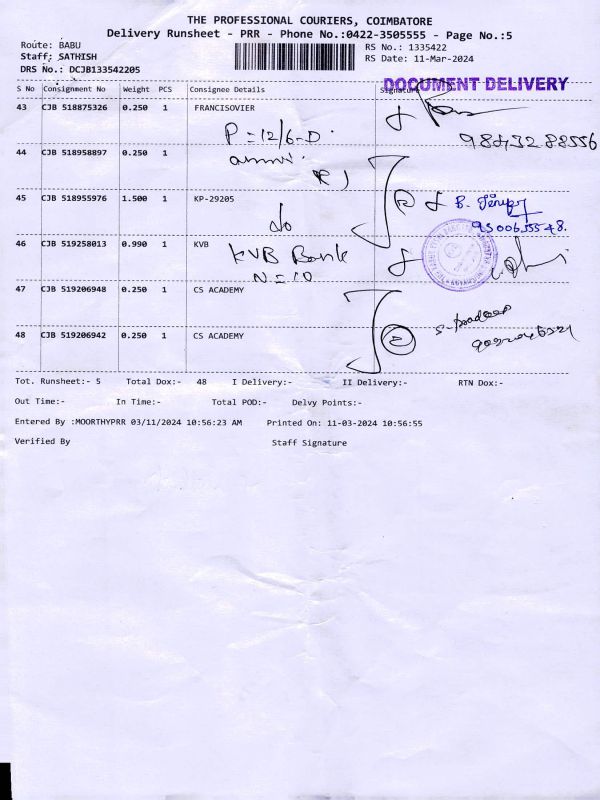 THE PROFESSIONAL COURIERS, COIMBATORE
Delivery Runsheet - PRR - Phone No.:0422-3505555 - Page No.:5
Route: BABU
RS No.: 1335422
Staff: SATHISH
RS Date: 11-Mar-2024
DRS No.: DCJB133542205
DOCUMENT DELIVERY
S No Consignment No Weight PCS Consignee Details Signature
43 CJB 518875326 0.250 1 FRANCISOVIER
P=12/6-D
98432 88556
44 CJB 518958897 0.250 1
45 CJB 518955976 1.500 1 KP-29205
46 CJB 519258013 0.990 1 KVB
KVB Bank
N=10
47 CJB 519206948 0.250 1 CS ACADEMY
S. Pradeep
48 CJB 519206942 0.250 1 CS ACADEMY
Tot. Runsheet:- 5 Total Dox:- 48 I Delivery:- II Delivery:- RTN Dox:-
Out Time:- In Time:- Total POD:- Delvy Points:-
Entered By :MOORTHYPRR 03/11/2024 10:56:23 AM Printed On: 11-03-2024 10:56:55
Verified By Staff Signature